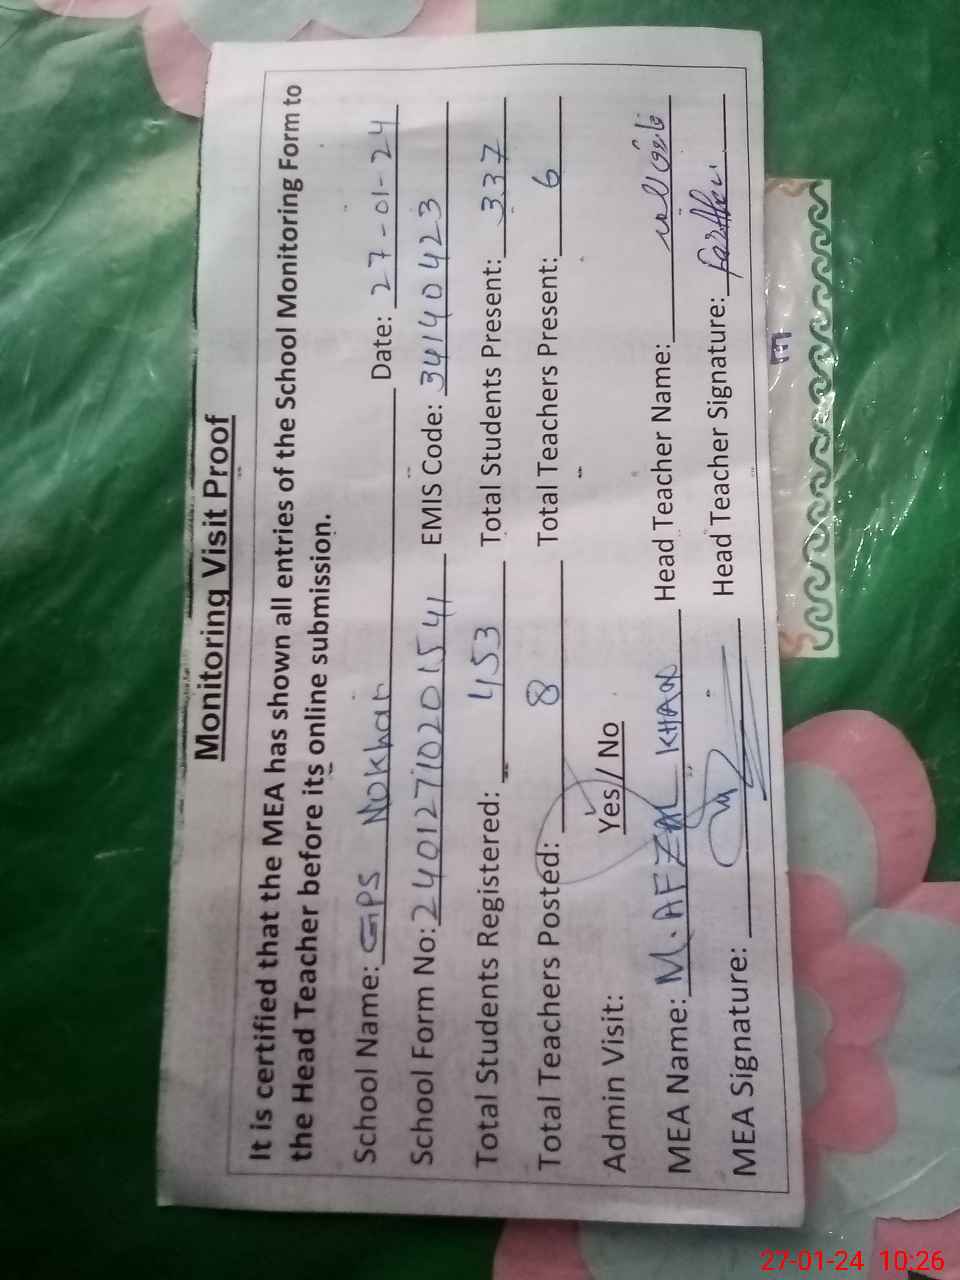 Monitoring Visit Proof
It is certified that the MEA has shown all entries of the School Monitoring Form to
the Head Teacher before its online submission.
School Name: GPS Nokhar Date: 27-01-24
School Form No: 240127102015 41 EMIS Code: 34140423
Total Students Registered: 453 Total Students Present: 337
Total Teachers Posted: 8 Total Teachers Present: 6
Admin Visit: Yes / No
MEA Name: M. AFZAL KHAN Head Teacher Name:
MEA Signature: Head Teacher Signature:
27-01-24 10:26